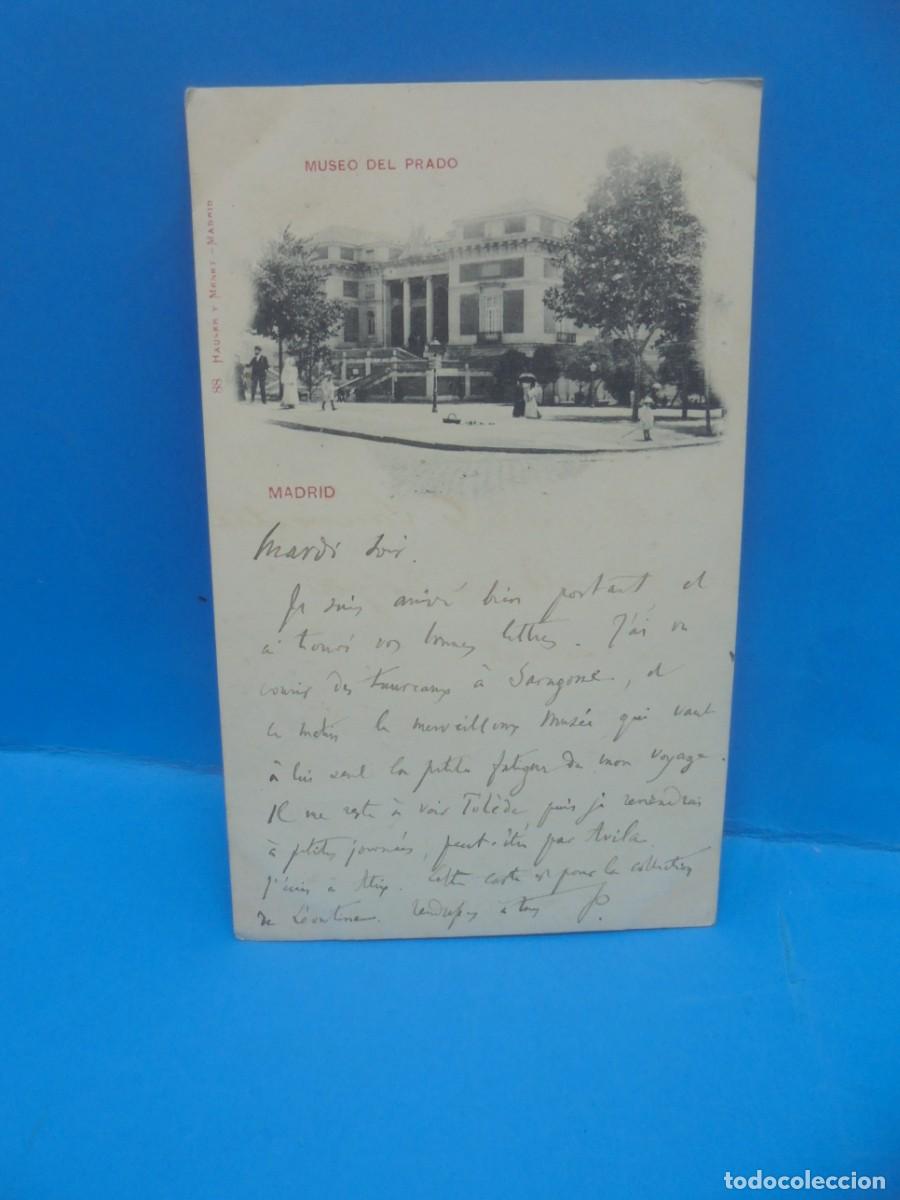 MUSEO DEL PRADO
88 HAUSER Y MENET – MADRID
MADRID
Mardi soir.
Je suis arrivé bien portant et
ai trouvé vos bonnes lettres. J'ai vu
courir des taureaux à Saragosse, et
ce matin le merveilleux Musée qui vaut
à lui seul la petite fatigue du mon voyage.
Il me reste à voir Tolède, puis je reviendrai
à petites journées, peut-être par Avila.
J'écris à . Cette carte est pour la collection
de Léontine. Tendresses à tous
todocoleccion
www.todocoleccion.net